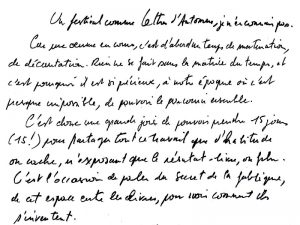 Un festival comme Lettres d'Automne, je n'en connais pas.
Car une œuvre en cours, c'est d'abord un temps de maturation,
de décantation. Rien ne se fait sans la matière du temps, et
c'est pourquoi il est si précieux, à notre époque où c'est
presque impossible, de pouvoir le parcourir ensemble.
C'est donc une grande joie de pouvoir prendre 15 jours
(15!) pour partager tout ce travail que d'habitude
on cache, n'exposant que le résultat - livre, ou film.
C'est l'occasion de parler du secret de la fabrique,
de cet espace entre les livres, pour voir comment ils
s'inventent.